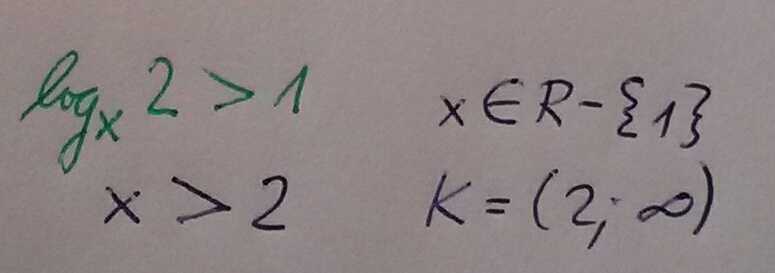 logₓ 2 > 1 x ∈ R - {1}
x > 2 K = (2; ∞)